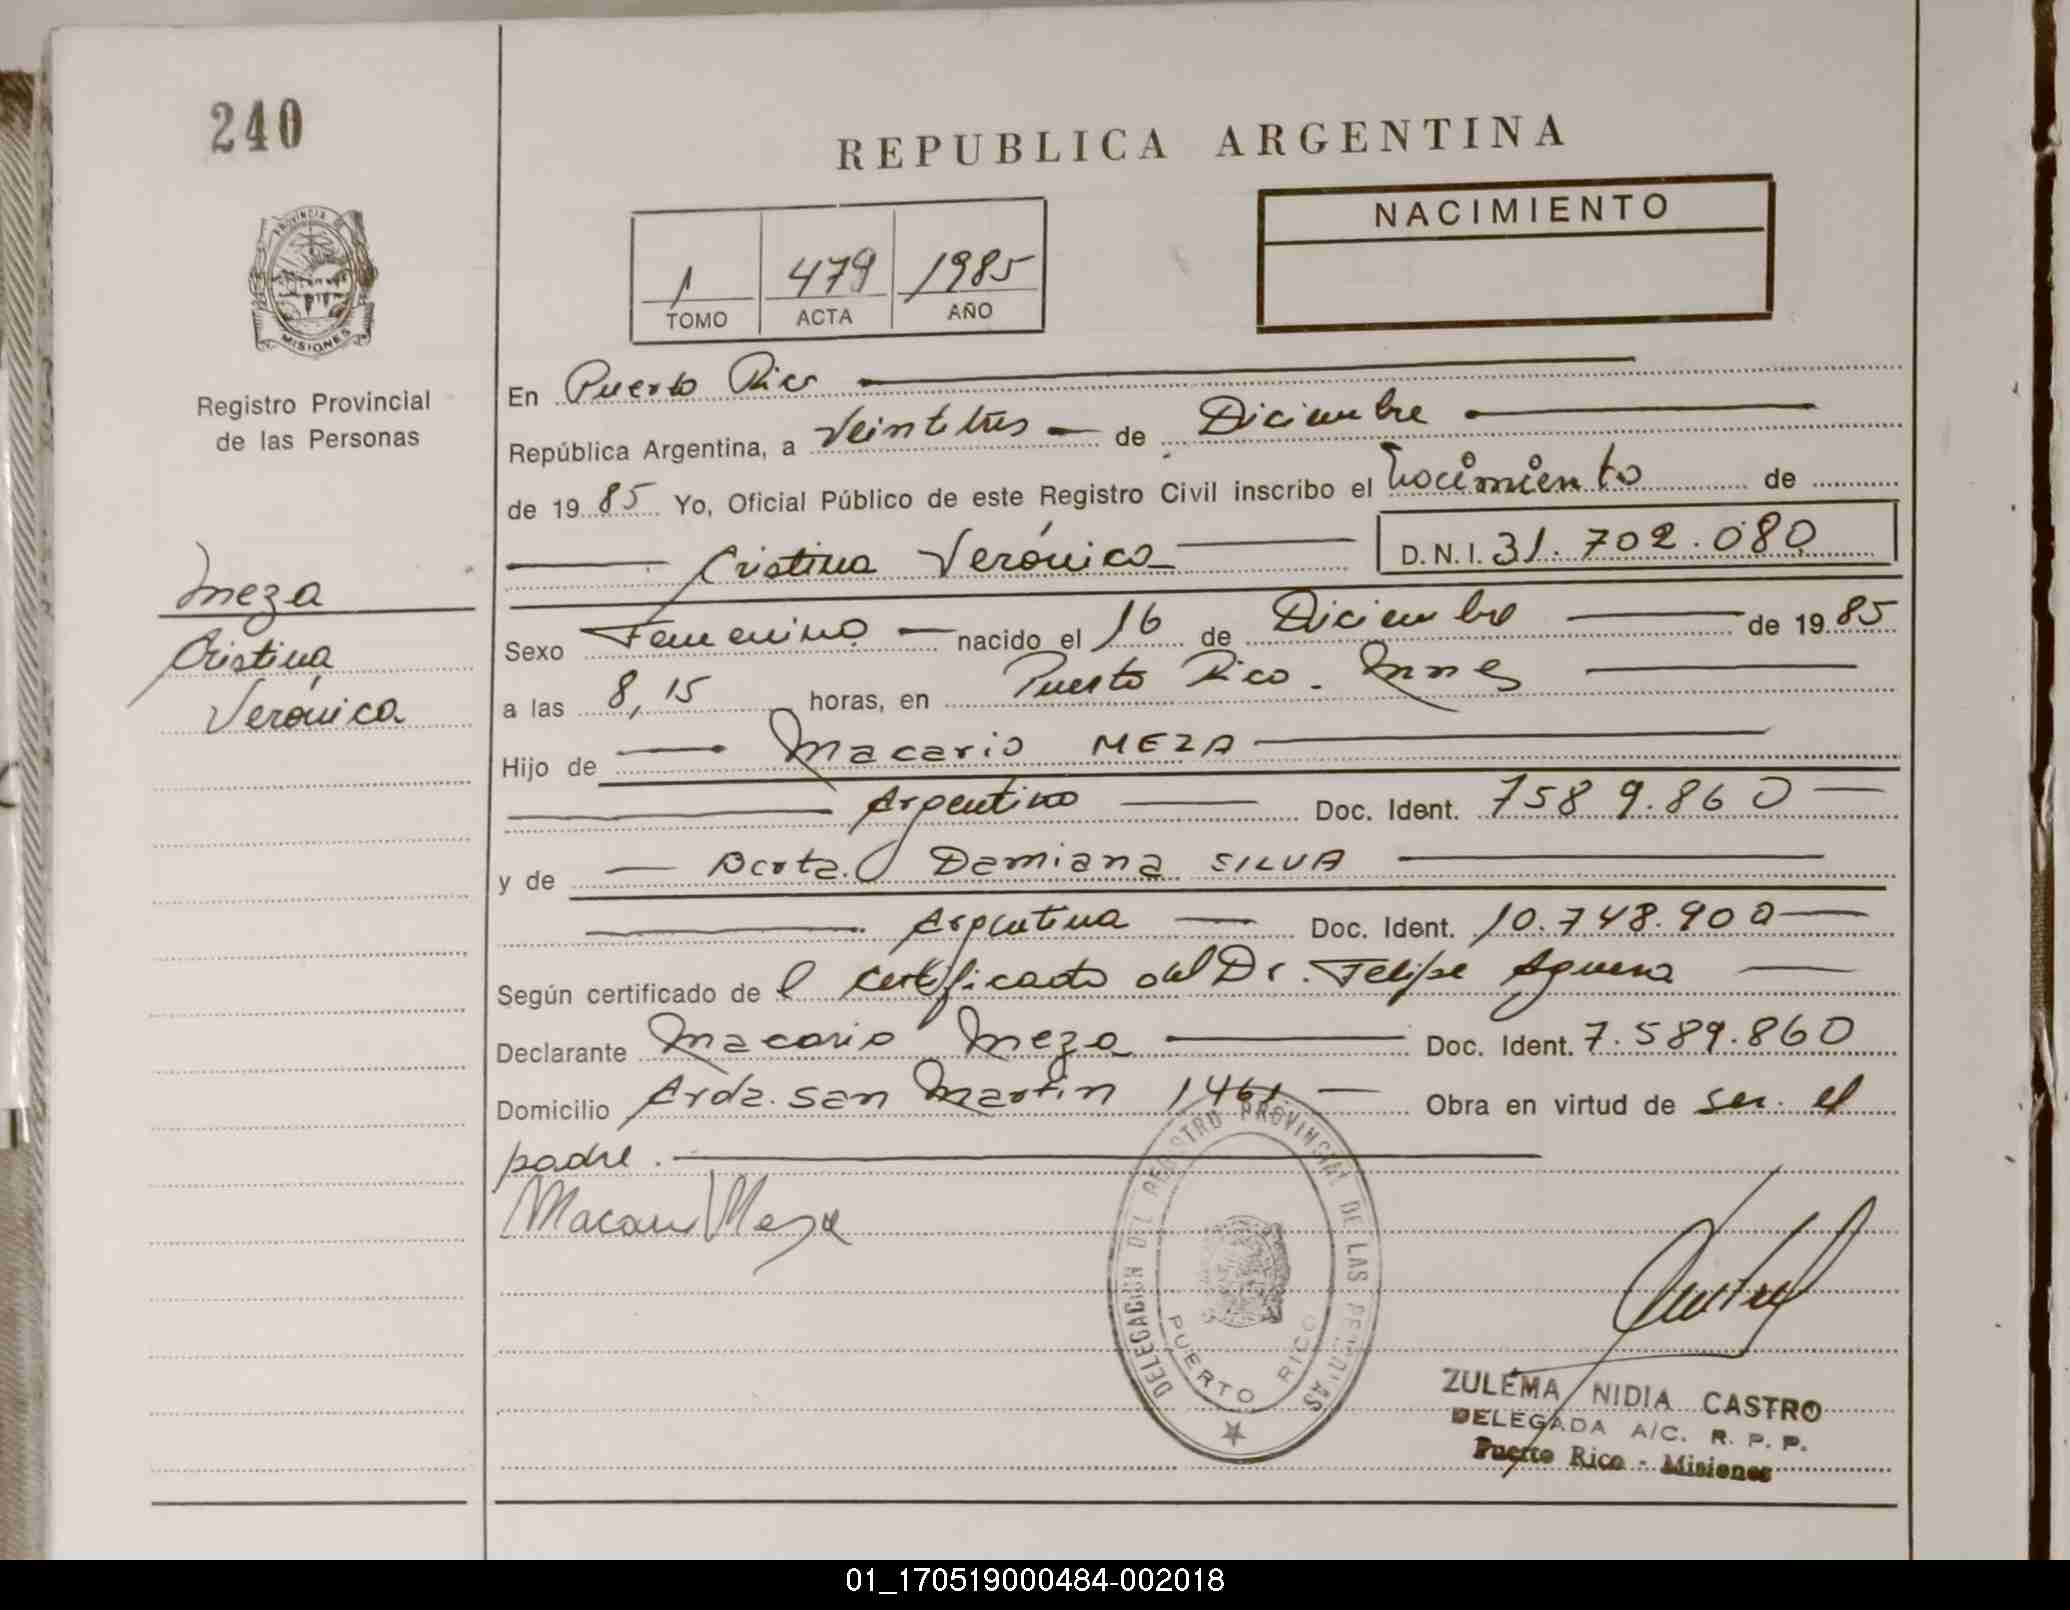 240
REPUBLICA ARGENTINA
PROVINCIA DE
MISIONES
Registro Provincial
de las Personas
1 479 1985
TOMO ACTA AÑO
NACIMIENTO
En Puerto Rico
República Argentina, a Veintitrés de Diciembre
de 19 85 Yo, Oficial Público de este Registro Civil inscribo el Nacimiento de
Cristina Verónica D.N.I. 31.702.080
Meza
Cristina
Verónica
Sexo Femenino nacido el 16 de Diciembre de 19 85
a las 8,15 horas, en Puerto Rico - Mnes
Hijo de Macario MEZA
Argentino Doc. Ident. 7589.860
y de Damiana SILVA
Argentina Doc. Ident. 10.748.900
Según certificado de el certificado del Dr. Felipe
Declarante Macario Meza Doc. Ident. 7.589.860
Domicilio Avda. San Martín 1461 Obra en virtud de ser el
padre.
Macario Meza
DELEGACION DEL REGISTRO PROVINCIAL DE LAS PERSONAS
PUERTO RICO
ZULEMA NIDIA CASTRO
DELEGADA A/C. R. P. P.
Puerto Rico - Misiones
01_170519000484-002018